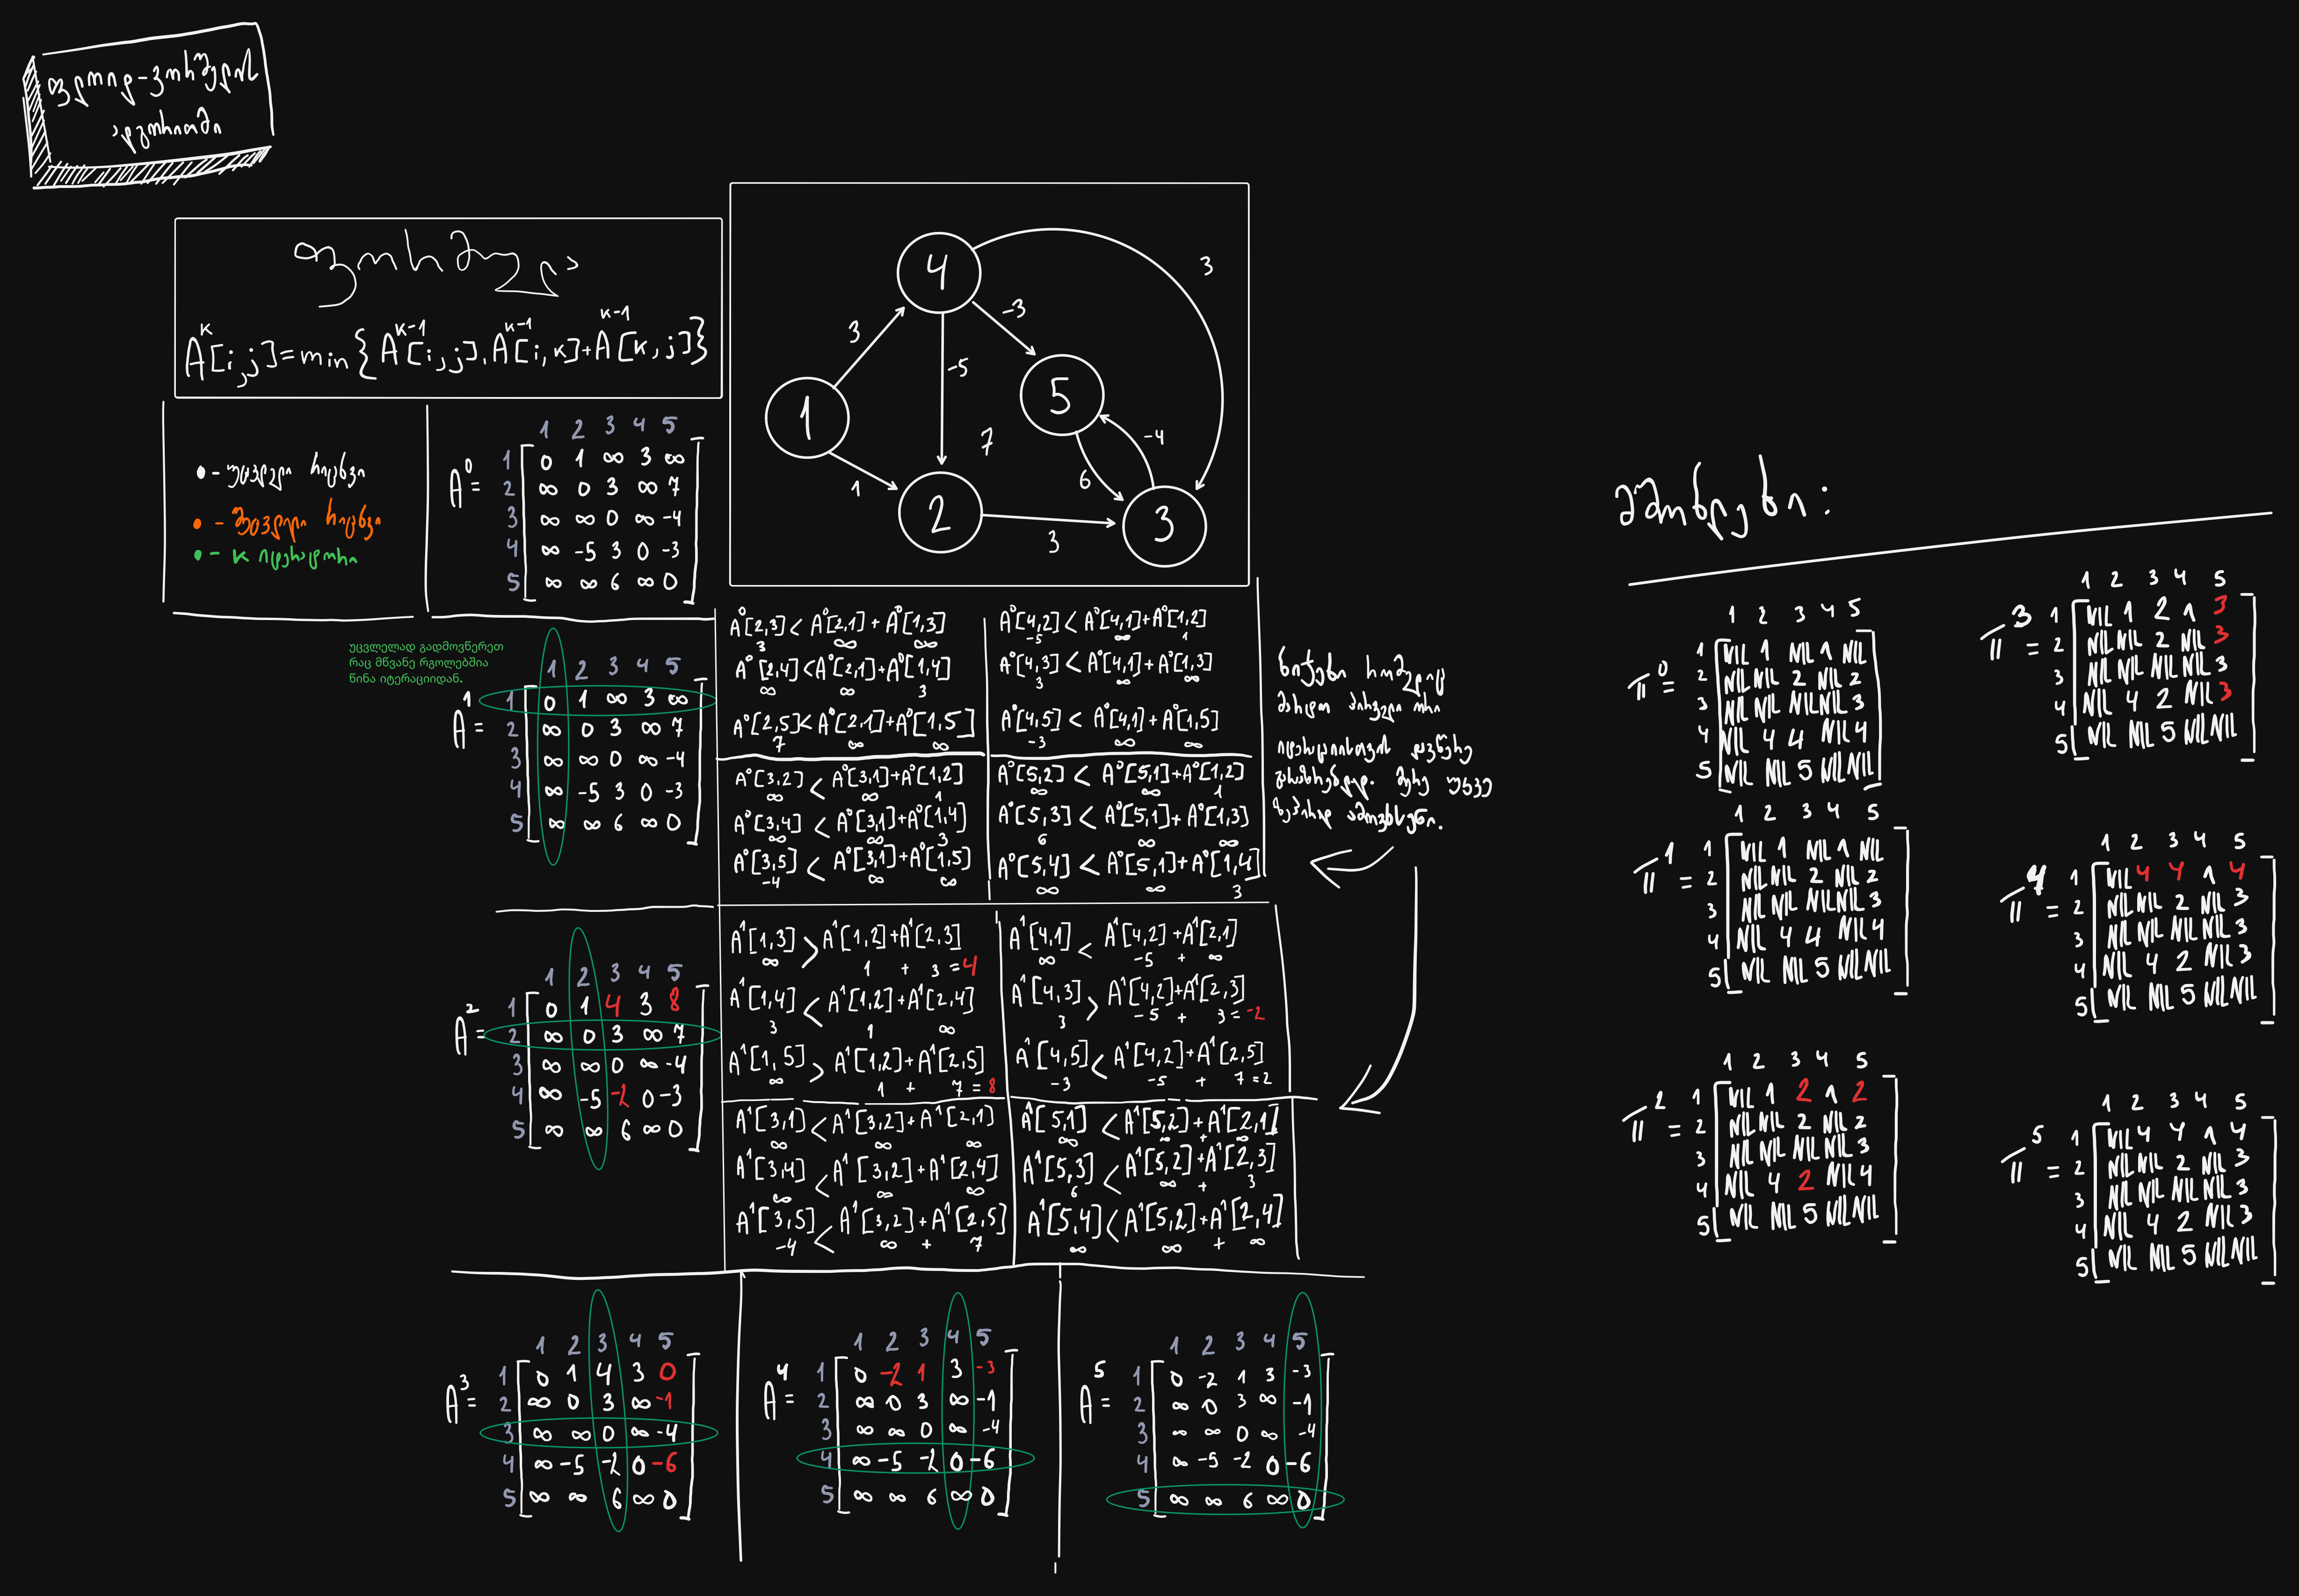 ფლოიდ-ვორშელის
ალგორითმი
ფორმულა
A^k[i,j]=min{A^k-1[i,j], A^k-1[i,k]+A^k-1[k,j]}
• - უცვლელი რიცხვი
• - შეცვლილი რიცხვი
• - k იტერატორი
A^0=
1 2 3 4 5
1 0 1 ∞ 3 ∞
2 ∞ 0 3 ∞ 7
3 ∞ ∞ 0 ∞ -4
4 ∞ -5 3 0 -3
5 ∞ ∞ 6 ∞ 0
4
3
-3
3
-5
1
5
7
-4
1
6
2
3
3
უცვლელად გადმოვწერეთ
რაც მწვანე რგოლებშია
წინა იტერაციიდან.
A^1=
1 2 3 4 5
1 0 1 ∞ 3 ∞
2 ∞ 0 3 ∞ 7
3 ∞ ∞ 0 ∞ -4
4 ∞ -5 3 0 -3
5 ∞ ∞ 6 ∞ 0
A^0[2,3] < A^0[2,1] + A^0[1,3]
3 ∞ ∞
A^0[2,4] < A^0[2,1] + A^0[1,4]
∞ ∞ 3
A^0[2,5] < A^0[2,1] + A^0[1,5]
7 ∞ ∞
A^0[4,2] < A^0[4,1] + A^0[1,2]
-5 ∞ 1
A^0[4,3] < A^0[4,1] + A^0[1,3]
3 ∞ ∞
A^0[4,5] < A^0[4,1] + A^0[1,5]
-3 ∞ ∞
A^0[3,2] < A^0[3,1] + A^0[1,2]
∞ ∞ 1
A^0[3,4] < A^0[3,1] + A^0[1,4]
∞ ∞ 3
A^0[3,5] < A^0[3,1] + A^0[1,5]
-4 ∞ ∞
A^0[5,2] < A^0[5,1] + A^0[1,2]
∞ ∞ 1
A^0[5,3] < A^0[5,1] + A^0[1,3]
6 ∞ ∞
A^0[5,4] < A^0[5,1] + A^0[1,4]
∞ ∞ 3
ნიჭები რომელიც
მარტო პირველი ორი
იტერაციისთვის დავწერე
მერე უკვე
ზეპირად ამოვხსენი.
A^2=
1 2 3 4 5
1 0 1 4 3 8
2 ∞ 0 3 ∞ 7
3 ∞ ∞ 0 ∞ -4
4 ∞ -5 -2 0 -3
5 ∞ ∞ 6 ∞ 0
A^1[1,3] > A^1[1,2] + A^1[2,3]
∞ 1 + 3 = 4
A^1[1,4] < A^1[1,2] + A^1[2,4]
3 1 ∞
A^1[1,5] > A^1[1,2] + A^1[2,5]
∞ 1 + 7 = 8
A^1[4,1] < A^1[4,2] + A^1[2,1]
∞ -5 + ∞
A^1[4,3] > A^1[4,2] + A^1[2,3]
3 -5 + 3 = -2
A^1[4,5] < A^1[4,2] + A^1[2,5]
-3 -5 + 7 = 2
A^1[3,1] < A^1[3,2] + A^1[2,1]
∞ ∞ ∞
A^1[3,4] < A^1[3,2] + A^1[2,4]
∞ ∞ ∞
A^1[3,5] < A^1[3,2] + A^1[2,5]
-4 ∞ + 7
A^1[5,1] < A^1[5,2] + A^1[2,1]
∞ ∞ + ∞
A^1[5,3] < A^1[5,2] + A^1[2,3]
6 ∞ + 3
A^1[5,4] < A^1[5,2] + A^1[2,4]
∞ ∞ + ∞
A^3=
1 2 3 4 5
1 0 1 4 3 0
2 ∞ 0 3 ∞ -1
3 ∞ ∞ 0 ∞ -4
4 ∞ -5 -2 0 -6
5 ∞ ∞ 6 ∞ 0
A^4=
1 2 3 4 5
1 0 -2 1 3 -3
2 ∞ 0 3 ∞ -1
3 ∞ ∞ 0 ∞ -4
4 ∞ -5 -2 0 -6
5 ∞ ∞ 6 ∞ 0
A^5=
1 2 3 4 5
1 0 -2 1 3 -3
2 ∞ 0 3 ∞ -1
3 ∞ ∞ 0 ∞ -4
4 ∞ -5 -2 0 -6
5 ∞ ∞ 6 ∞ 0
მშობლები:
π^0=
1 2 3 4 5
1 NIL 1 NIL 1 NIL
2 NIL NIL 2 NIL 2
3 NIL NIL NIL NIL 3
4 NIL 4 4 NIL 4
5 NIL NIL 5 NIL NIL
π^1=
1 2 3 4 5
1 NIL 1 NIL 1 NIL
2 NIL NIL 2 NIL 2
3 NIL NIL NIL NIL 3
4 NIL 4 4 NIL 4
5 NIL NIL 5 NIL NIL
π^2=
1 2 3 4 5
1 NIL 1 2 1 2
2 NIL NIL 2 NIL 2
3 NIL NIL NIL NIL 3
4 NIL 4 2 NIL 4
5 NIL NIL 5 NIL NIL
π^3=
1 2 3 4 5
1 NIL 1 2 1 3
2 NIL NIL 2 NIL 3
3 NIL NIL NIL NIL 3
4 NIL 4 2 NIL 3
5 NIL NIL 5 NIL NIL
π^4=
1 2 3 4 5
1 NIL 4 4 1 4
2 NIL NIL 2 NIL 3
3 NIL NIL NIL NIL 3
4 NIL 4 2 NIL 3
5 NIL NIL 5 NIL NIL
π^5=
1 2 3 4 5
1 NIL 4 4 1 4
2 NIL NIL 2 NIL 3
3 NIL NIL NIL NIL 3
4 NIL 4 2 NIL 3
5 NIL NIL 5 NIL NIL